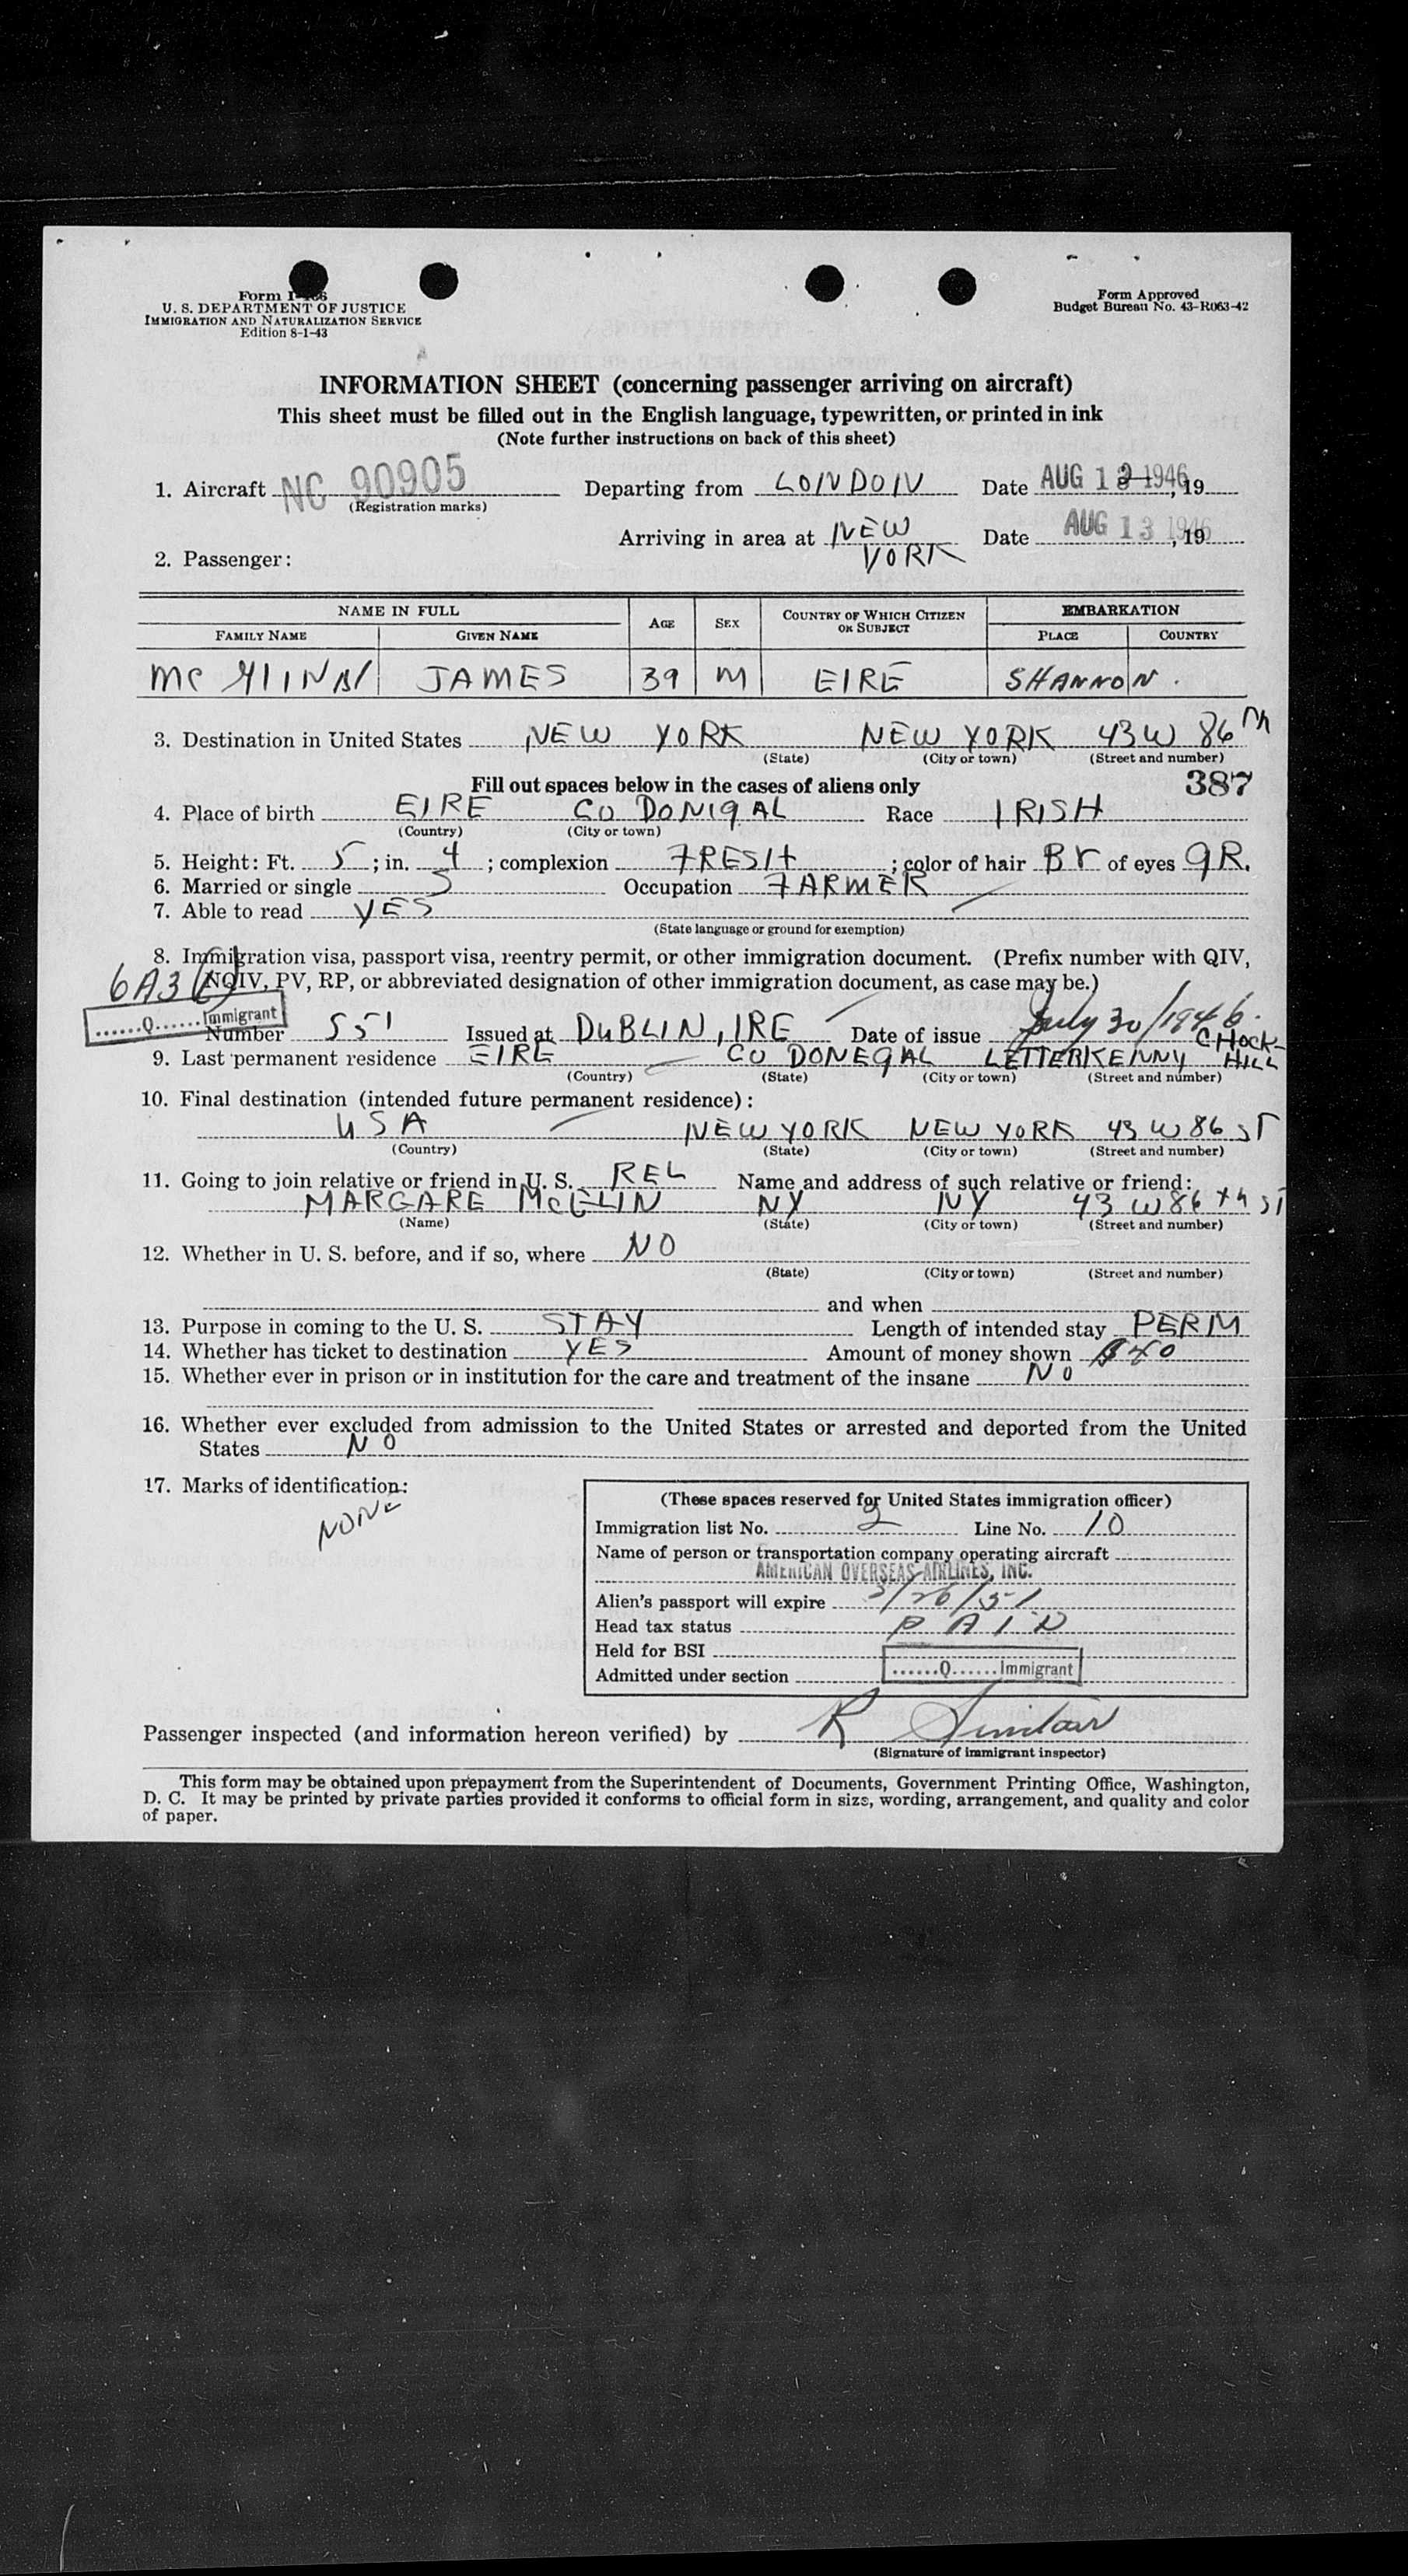 U. S. DEPARTMENT OF JUSTICE
IMMIGRATION AND NATURALIZATION SERVICE
Edition 8-1-43
Form Approved
Budget Bureau No. 43-R063-42
INFORMATION SHEET (concerning passenger arriving on aircraft)
This sheet must be filled out in the English language, typewritten, or printed in ink
(Note further instructions on back of this sheet)
1. Aircraft NC 90905 Departing from LONDON Date AUG 1 1946, 19
(Registration marks)
Arriving in area at NEW YORK Date AUG 13 1946, 19
2. Passenger:
NAME IN FULL AGE SEX COUNTRY OF WHICH CITIZEN OR SUBJECT EMBARKATION
FAMILY NAME GIVEN NAME PLACE COUNTRY
Mc GLINN JAMES 39 M EIRE SHANNON.
3. Destination in United States NEW YORK NEW YORK 43 W 86 TH
(State) (City or town) (Street and number)
Fill out spaces below in the cases of aliens only 387
4. Place of birth EIRE CO DONIGAL Race IRISH
(Country) (City or town)
5. Height: Ft. 5; in. 4; complexion FRESH; color of hair Br of eyes GR.
6. Married or single S Occupation FARMER
7. Able to read YES
(State language or ground for exemption)
8. Immigration visa, passport visa, reentry permit, or other immigration document. (Prefix number with QIV,
6A3 NQIV, PV, RP, or abbreviated designation of other immigration document, as case may be.)
......Q......Immigrant
Number 551 Issued at DUBLIN, IRE Date of issue July 30/1946.
9. Last permanent residence EIRE CO DONEGAL LETTERKENNY CHOCK-HILL
(Country) (State) (City or town) (Street and number)
10. Final destination (intended future permanent residence):
USA NEW YORK NEW YORK 43 W 86 ST
(Country) (State) (City or town) (Street and number)
11. Going to join relative or friend in U. S. REL Name and address of such relative or friend:
MARGARE McGLIN NY NY 43 W 86 th ST
(Name) (State) (City or town) (Street and number)
12. Whether in U. S. before, and if so, where NO
(State) (City or town) (Street and number)
and when
13. Purpose in coming to the U. S. STAY Length of intended stay PERM
14. Whether has ticket to destination YES Amount of money shown $40
15. Whether ever in prison or in institution for the care and treatment of the insane NO
16. Whether ever excluded from admission to the United States or arrested and deported from the United
States NO
17. Marks of identification:
NONE
(These spaces reserved for United States immigration officer)
Immigration list No. 2 Line No. 10
Name of person or transportation company operating aircraft
AMERICAN OVERSEAS AIRLINES, INC.
Alien's passport will expire 3/26/51
Head tax status PAID
Held for BSI
Admitted under section ......Q......Immigrant
Passenger inspected (and information hereon verified) by R Sinclair
(Signature of immigrant inspector)
This form may be obtained upon prepayment from the Superintendent of Documents, Government Printing Office, Washington,
D. C. It may be printed by private parties provided it conforms to official form in size, wording, arrangement, and quality and color
of paper.